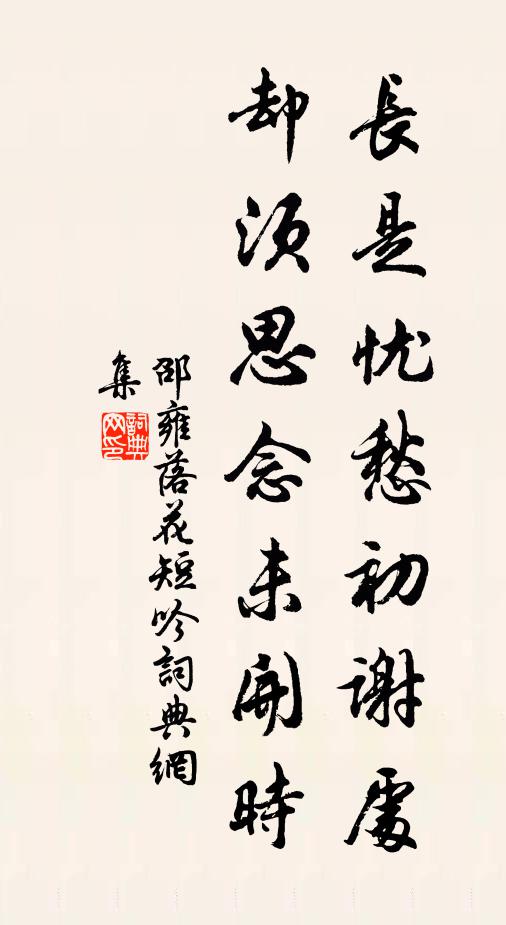 長是忧愁初谢處
却须思念未開時
邵雍落花短吟詞典網
集
詞典网印